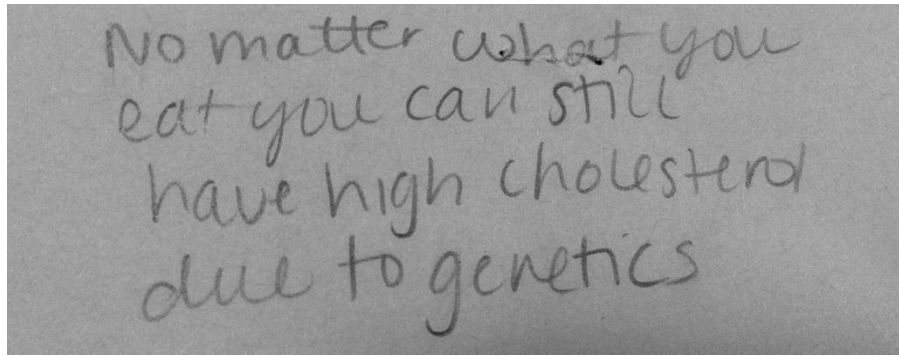 No matter what you
eat you can still
have high cholesterol
due to genetics